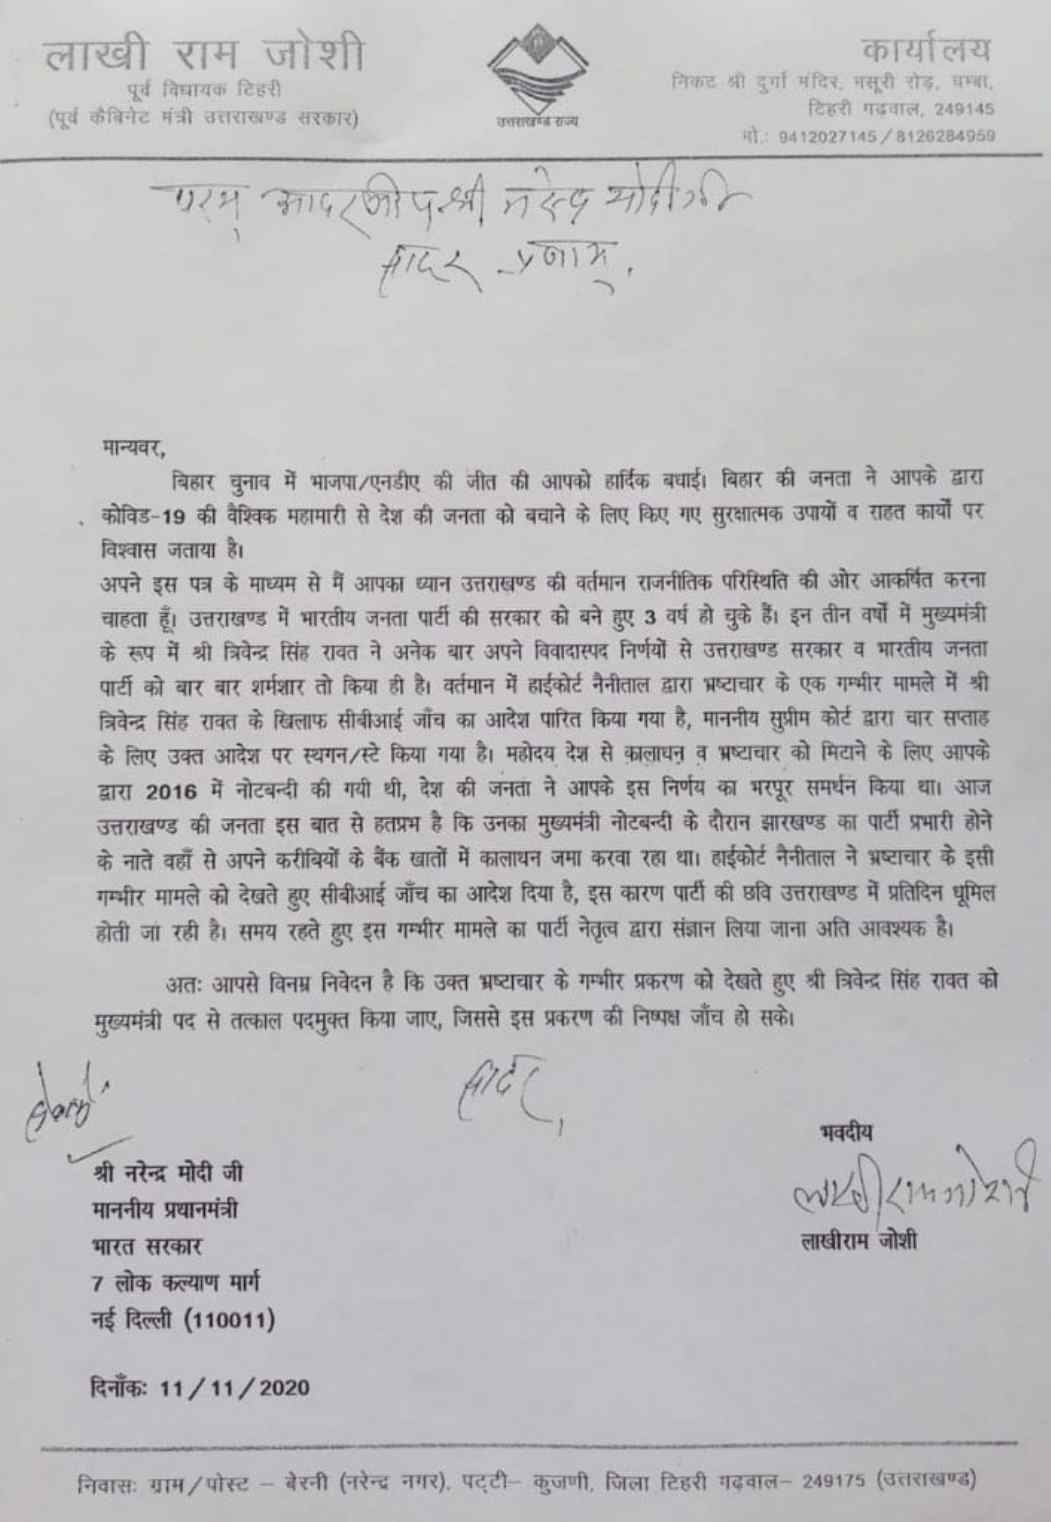 लाखी राम जोशी
पूर्व विधायक टिहरी
(पूर्व कैबिनेट मंत्री उत्तराखण्ड सरकार)
उत्तराखण्ड राज्य
कार्यालय
निकट श्री दुर्गा मंदिर, मसूरी रोड़, चम्बा,
टिहरी गढ़वाल, 249145
मो.: 9412027145/8126284959
परम आदरणीय श्री नरेन्द्र मोदी जी
सादर प्रणाम,
मान्यवर,
बिहार चुनाव में भाजपा/एनडीए की जीत की आपको हार्दिक बधाई। बिहार की जनता ने आपके द्वारा
कोविड-19 की वैश्विक महामारी से देश की जनता को बचाने के लिए किए गए सुरक्षात्मक उपायों व राहत कार्यों पर
विश्वास जताया है।
अपने इस पत्र के माध्यम से मैं आपका ध्यान उत्तराखण्ड की वर्तमान राजनीतिक परिस्थिति की ओर आकर्षित करना
चाहता हूँ। उत्तराखण्ड में भारतीय जनता पार्टी की सरकार को बने हुए 3 वर्ष हो चुके हैं। इन तीन वर्षों में मुख्यमंत्री
के रूप में श्री त्रिवेन्द्र सिंह रावत ने अनेक बार अपने विवादास्पद निर्णयों से उत्तराखण्ड सरकार व भारतीय जनता
पार्टी को बार बार शर्मशार तो किया ही है। वर्तमान में हाईकोर्ट नैनीताल द्वारा भ्रष्टाचार के एक गम्भीर मामले में श्री
त्रिवेन्द्र सिंह रावत के खिलाफ सीबीआई जाँच का आदेश पारित किया गया है, माननीय सुप्रीम कोर्ट द्वारा चार सप्ताह
के लिए उक्त आदेश पर स्थगन/स्टे किया गया है। महोदय देश से कालाधन व भ्रष्टाचार को मिटाने के लिए आपके
द्वारा 2016 में नोटबन्दी की गयी थी, देश की जनता ने आपके इस निर्णय का भरपूर समर्थन किया था। आज
उत्तराखण्ड की जनता इस बात से हतप्रभ है कि उनका मुख्यमंत्री नोटबन्दी के दौरान झारखण्ड का पार्टी प्रभारी होने
के नाते वहाँ से अपने करीबियों के बैंक खातों में कालाधन जमा करवा रहा था। हाईकोर्ट नैनीताल ने भ्रष्टाचार के इसी
गम्भीर मामले को देखते हुए सीबीआई जाँच का आदेश दिया है, इस कारण पार्टी की छवि उत्तराखण्ड में प्रतिदिन धूमिल
होती जा रही है। समय रहते हुए इस गम्भीर मामले का पार्टी नेतृत्व द्वारा संज्ञान लिया जाना अति आवश्यक है।
अतः आपसे विनम्र निवेदन है कि उक्त भ्रष्टाचार के गम्भीर प्रकरण को देखते हुए श्री त्रिवेन्द्र सिंह रावत को
मुख्यमंत्री पद से तत्काल पदमुक्त किया जाए, जिससे इस प्रकरण की निष्पक्ष जाँच हो सके।
सादर,
भवदीय
लाखीराम जोशी
लाखीराम जोशी
श्री नरेन्द्र मोदी जी
माननीय प्रधानमंत्री
भारत सरकार
7 लोक कल्याण मार्ग
नई दिल्ली (110011)
दिनाँकः 11/11/2020
निवासः ग्राम/पोस्ट – बेरनी (नरेन्द्र नगर), पट्टी– कुजणी, जिला टिहरी गढ़वाल– 249175 (उत्तराखण्ड)